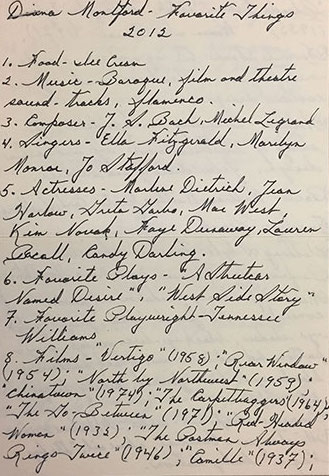 Diana Montford - Favorite Things
2012
1. Food - Ice Cream
2. Music - Baroque, film and theatre
sound-tracks, flamenco.
3. Composer - J. S. Bach, Michel Legrand
4. Singers - Ella Fitzgerald, Marilyn
Monroe, Jo Stafford.
5. Actresses - Marlene Dietrich, Jean
Harlow, Greta Garbo, Mae West,
Kim Novak, Faye Dunaway, Lauren
Bacall, Candy Darling.
6. Favorite Plays - "A Streetcar
Named Desire", "West Side Story"
7. Favorite Playwright - Tennessee
Williams
8. Films - "Vertigo" (1958); "Rear Window"
(1954); "North by Northwest" (1959);
"Chinatown" (1974); "The Carpetbaggers" (1964);
"The Go-Between" (1971); "Red-Headed
Women" (1932); "The Postman Always
Rings Twice" (1946); "Camille" (1937);